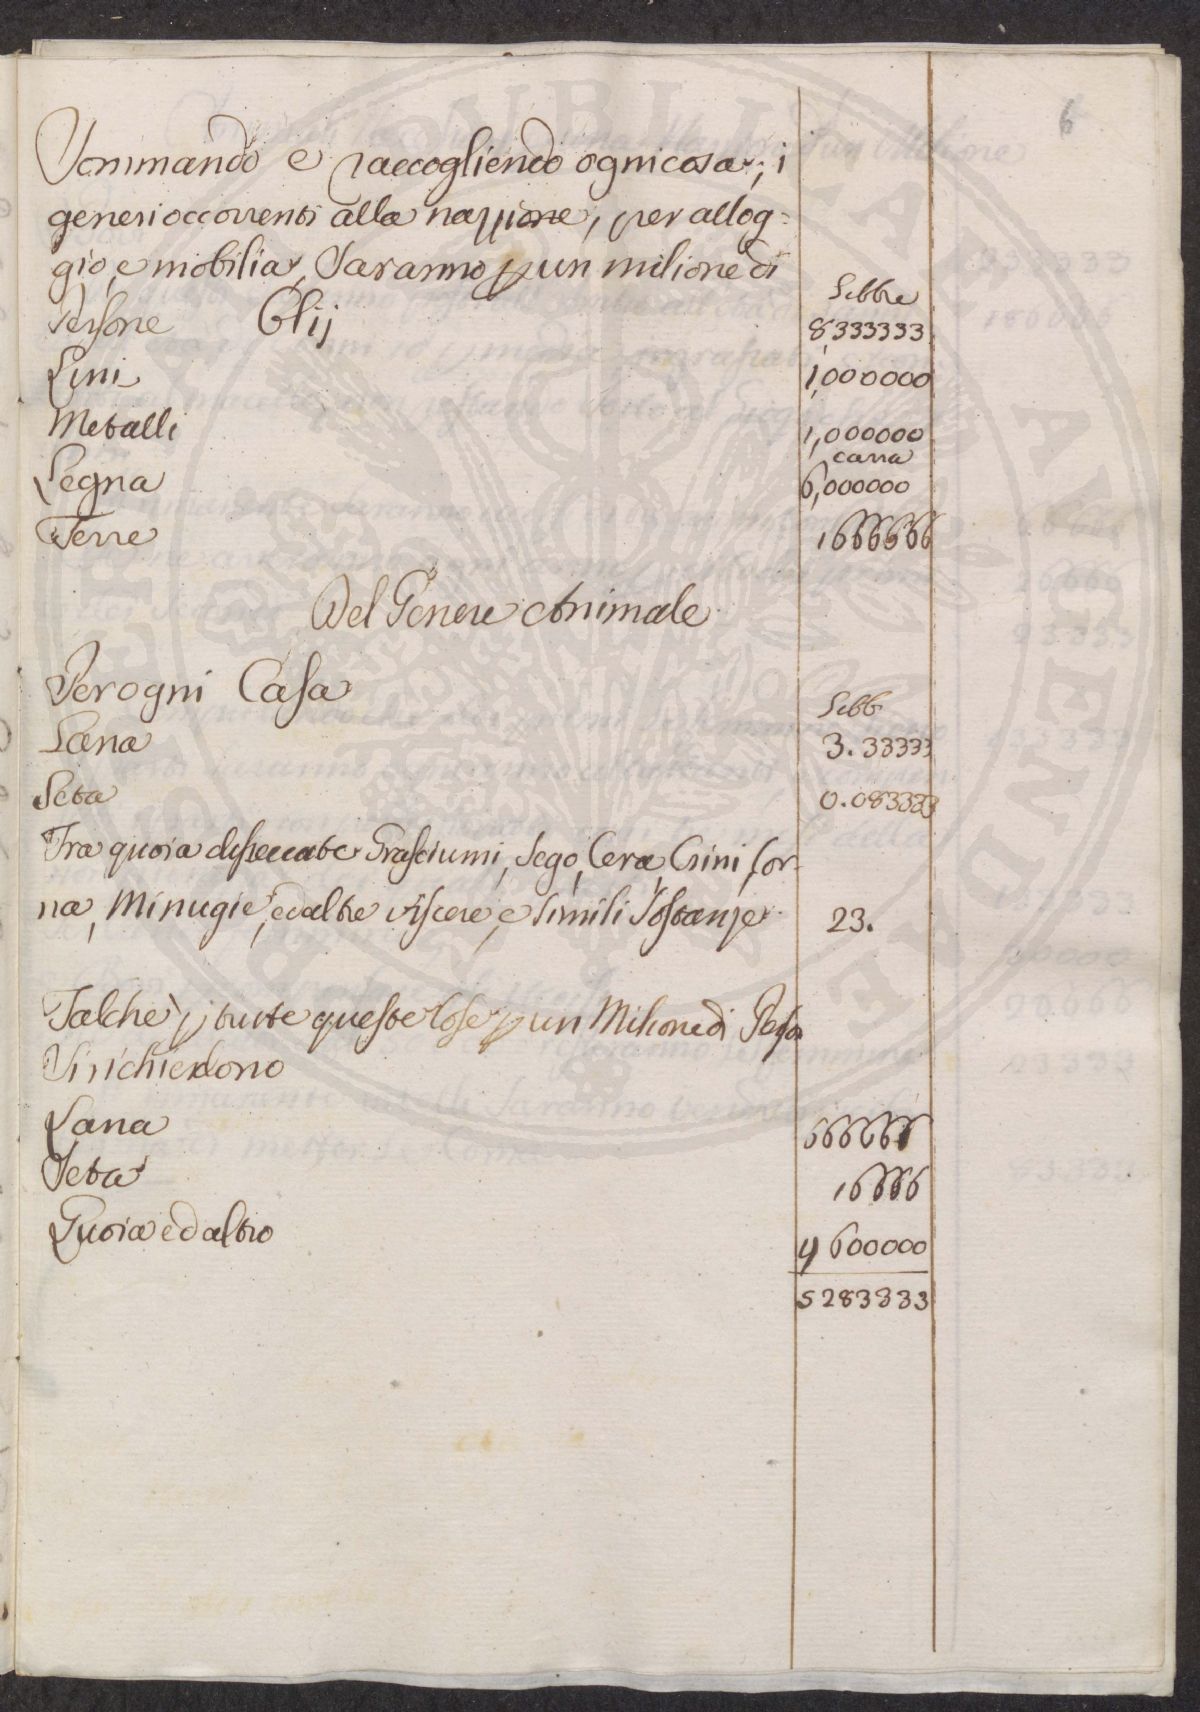 6
Sommando e raccogliendo ogni cosa; i
generi occorrenti alla nazzione, per allog=
gio, e mobilia, Saranno p un milione di
Persone Olij Libbre 8333333
Lini 1,000000
Metalli 1,000000
Legna carra 6,000000
Terre 1666666
Del Genere Animale
Per ogni Casa Libb
Lana 3.33333
Seta 0.083333
Tra quoia disseccate Grasciumi, Sego, Cera, Crini, Cor-
na, Minugie, ed altre viscere, e simili Sostanze 23.
Talche p tutte queste Cose p un Milione di Pesõn
Si richiedono
Lana 666666
Seta 16666
Quoia ed altro 4600000
5283333